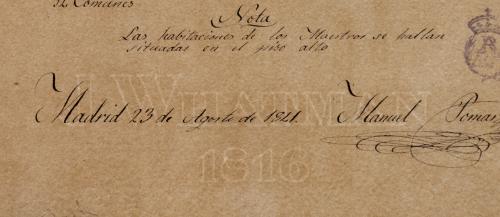 Comunes
Nota
Las habitaciones de los Maestros se hallan
situadas en el piso alto
J WHATMAN
Madrid 23 de Agosto de 1841.
Manuel Pomar
1816